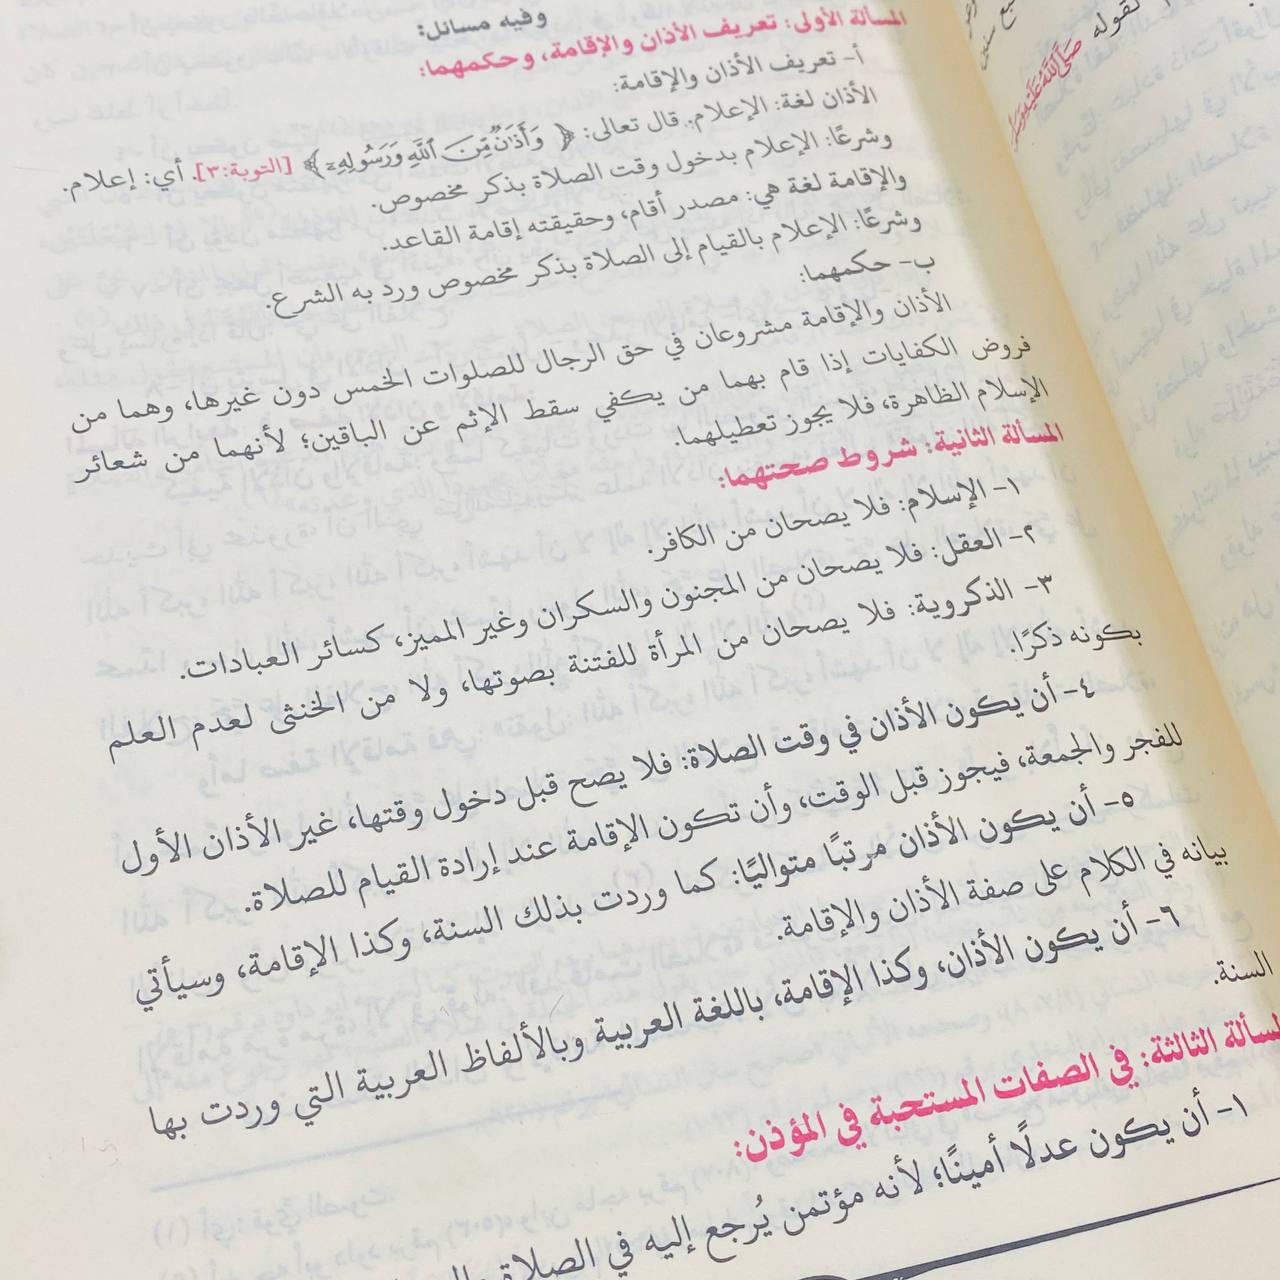 وفيه مسائل:
المسألة الأولى: تعريف الأذان والإقامة، وحكمهما:
أ- تعريف الأذان والإقامة:
الأذان لغة: الإعلام. قال تعالى: ﴿وَأَذَٰنٌ مِّنَ ٱللَّهِ وَرَسُولِهِۦٓ﴾ [التوبة:٣]. أي: إعلام.
وشرعًا: الإعلام بدخول وقت الصلاة بذكر مخصوص.
والإقامة لغة هي: مصدر أقام، وحقيقته إقامة القاعد.
وشرعًا: الإعلام بالقيام إلى الصلاة بذكر مخصوص ورد به الشرع.
ب- حكمهما:
الأذان والإقامة مشروعان في حق الرجال للصلوات الخمس دون غيرها، وهما من
فروض الكفايات إذا قام بهما من يكفي سقط الإثم عن الباقين؛ لأنهما من شعائر
الإسلام الظاهرة، فلا يجوز تعطيلهما.
المسألة الثانية: شروط صحتهما:
١- الإسلام: فلا يصحان من الكافر.
٢- العقل: فلا يصحان من المجنون والسكران وغير المميز، كسائر العبادات.
٣- الذكروية: فلا يصحان من المرأة للفتنة بصوتها، ولا من الخنثى لعدم العلم
بكونه ذكرًا.
٤- أن يكون الأذان في وقت الصلاة: فلا يصح قبل دخول وقتها، غير الأذان الأول
للفجر والجمعة، فيجوز قبل الوقت، وأن تكون الإقامة عند إرادة القيام للصلاة.
٥- أن يكون الأذان مرتبًا متواليًا: كما وردت بذلك السنة، وكذا الإقامة، وسيأتي
بيانه في الكلام على صفة الأذان والإقامة.
٦- أن يكون الأذان، وكذا الإقامة، باللغة العربية وبالألفاظ العربية التي وردت بها
السنة.
لمسألة الثالثة: في الصفات المستحبة في المؤذن:
١- أن يكون عدلًا أمينًا؛ لأنه مؤتمن يُرجع إليه في الصلاة
لقوله صَلَّى اللَّهُ عَلَيْهِ وَسَلَّمَ